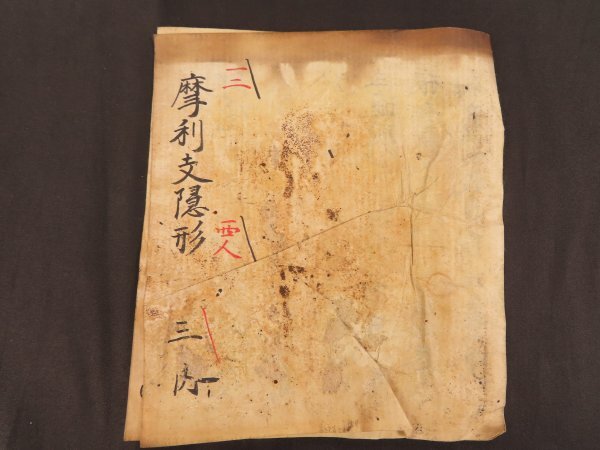 摩利支隠形
三内
一三
西人